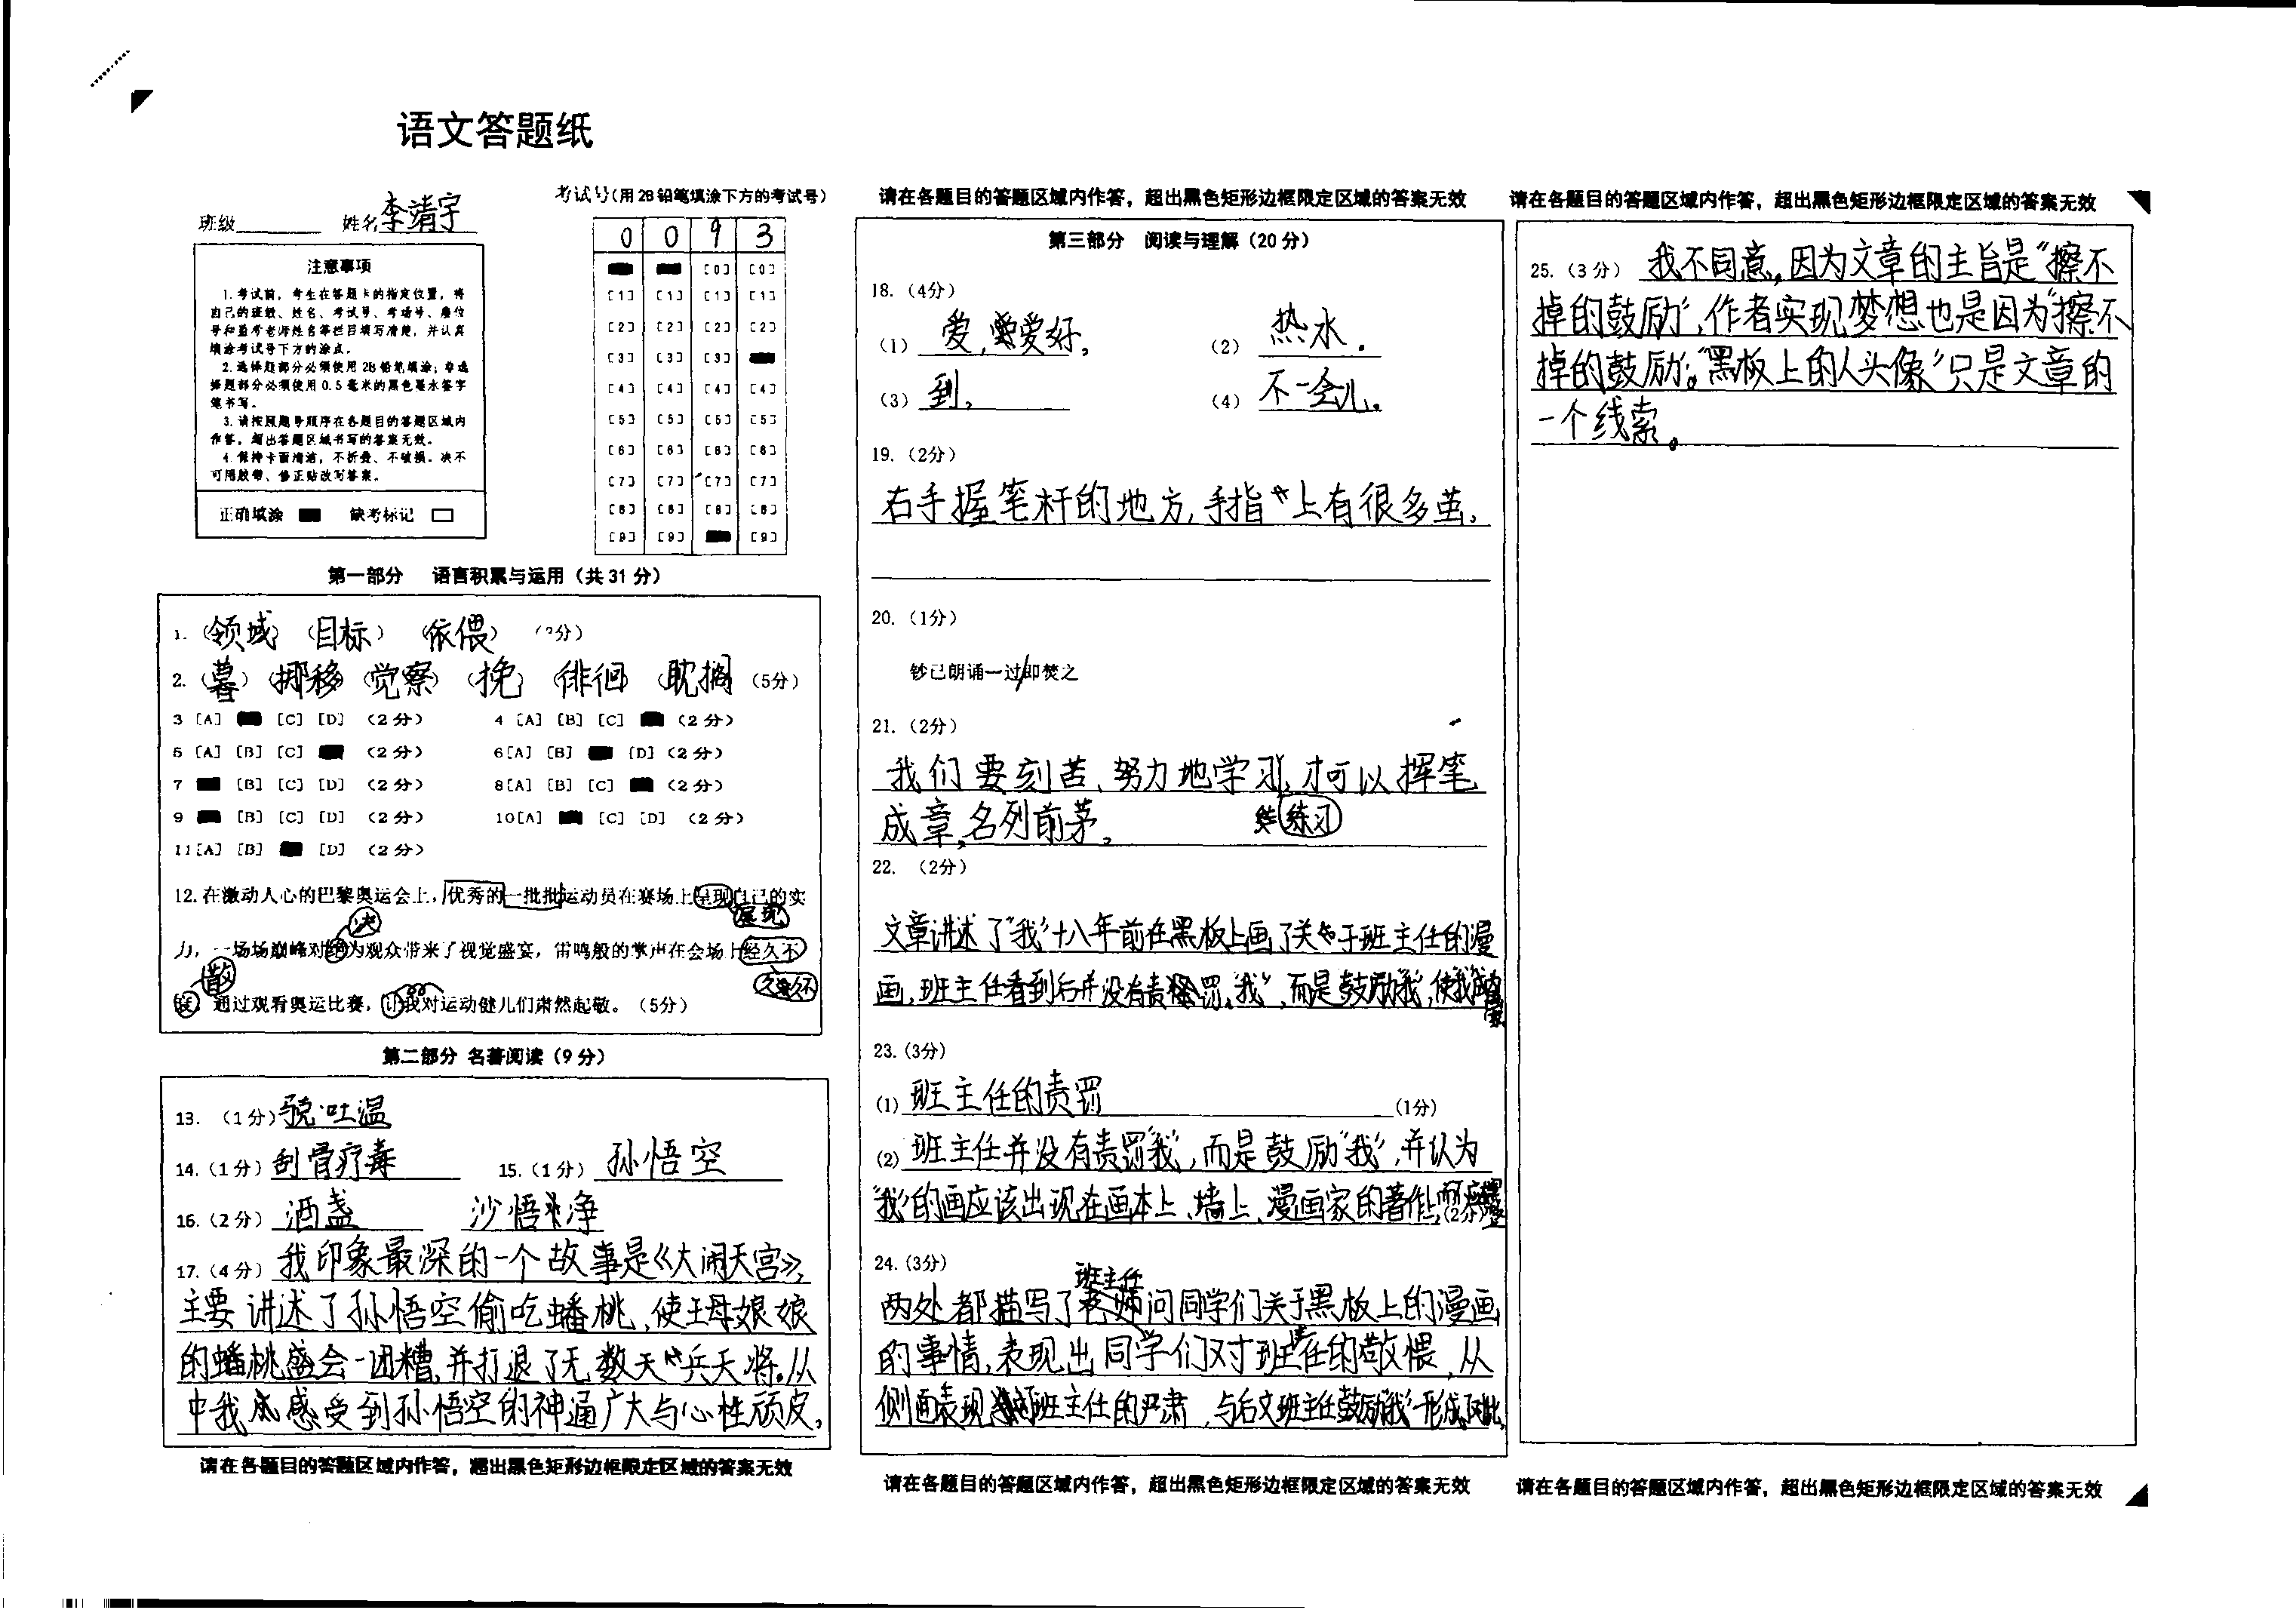 语文答题纸
班级 姓名 李靖宇
考试号(用2B铅笔填涂下方的考试号)
0 0 9 3
注意事项
1.考试前,考生在答题卡的指定位置,将
自己的班级、姓名、考试号、考场号、座位
号和监考老师姓名等栏目填写清楚,并认真
填涂考试号下方的涂点。
2.选择题部分必须使用2B铅笔填涂;非选
择题部分必须使用0.5毫米的黑色墨水签字
笔书写。
3.请按照题号顺序在各题目的答题区域内
作答,超出答题区域书写的答案无效。
4.保持卡面清洁,不折叠、不破损。决不
可用胶带、修正贴改写答案。
正确填涂 缺考标记
[0] [0]
[1] [1] [1] [1]
[2] [2] [2] [2]
[3] [3] [3]
[4] [4] [4] [4]
[5] [5] [5] [5]
[6] [6] [6] [6]
[7] [7] [7] [7]
[8] [8] [8] [8]
[9] [9] [9]
第一部分 语言积累与运用(共31分)
1.(领域)(目标)(依偎)
2.(暮)(挪移)(觉察)(挽)(徘徊)(耽搁)(5分)
3 [A] [C] [D] (2分) 4 [A] [B] [C] (2分)
5 [A] [B] [C] (2分) 6[A] [B] [D] (2分)
7 [B] [C] [D] (2分) 8[A] [B] [C] (2分)
9 [B] [C] [D] (2分) 10[A] [C] [D] (2分)
11[A] [B] [D] (2分)
12.在激动人心的巴黎奥运会上,优秀的一批批运动员在赛场上呈现自己的实
展现
决
力,一场场巅峰对绝为观众带来了视觉盛宴,雷鸣般的掌声在会场上经久不
散
久不
通过观看奥运比赛,让我对运动健儿们肃然起敬。(5分)
第二部分 名著阅读(9分)
13.(1分)
14.(1分)刮骨疗毒 15.(1分)孙悟空
16.(2分)酒盏 沙悟净
17.(4分)我印象最深的一个故事是《大闹天宫》,
主要讲述了孙悟空偷吃蟠桃,使王母娘娘
的蟠桃盛会一团糟,并打退了无数天兵天将。从
中我感受到孙悟空的神通广大与心性顽皮,
请在各题目的答题区域内作答,超出黑色矩形边框限定区域的答案无效
请在各题目的答题区域内作答,超出黑色矩形边框限定区域的答案无效
第三部分 阅读与理解(20分)
18.(4分)
(1)爱,爱好, (2)热水.
(3)到, (4)不一会儿。
19.(2分)
右手握笔杆的地方,手指上有很多茧,
20.(1分)
钞已朗诵一过/即焚之
21.(2分)
我们要刻苦、努力地学习,才可以挥笔
成章,名列前茅。 练习
22.(2分)
文章讲述了“我”十八年前在黑板上画了关于班主任的漫
画,班主任看到后并没有责罚“我”,而是鼓励“我”,使“我”
23.(3分)
(1)班主任的责罚 (1分)
(2)班主任并没有责罚“我”,而是鼓励“我”,并认为
“我”的画应该出现在画本上、墙上、漫画家的著作上, (2分)
24.(3分)
班主任
两处都描写了问同学们关于黑板上的漫画
的事情,表现出同学们对班主任的敬惧,从
侧面表现班主任的严肃,与后文班主任鼓励“我”形成对比,
请在各题目的答题区域内作答,超出黑色矩形边框限定区域的答案无效
请在各题目的答题区域内作答,超出黑色矩形边框限定区域的答案无效
25.(3分)我不同意,因为文章的主旨是“擦不
掉的鼓励”,作者实现梦想也是因为“擦不
掉的鼓励”。“黑板上的人头像”只是文章的
一个线索。
请在各题目的答题区域内作答,超出黑色矩形边框限定区域的答案无效